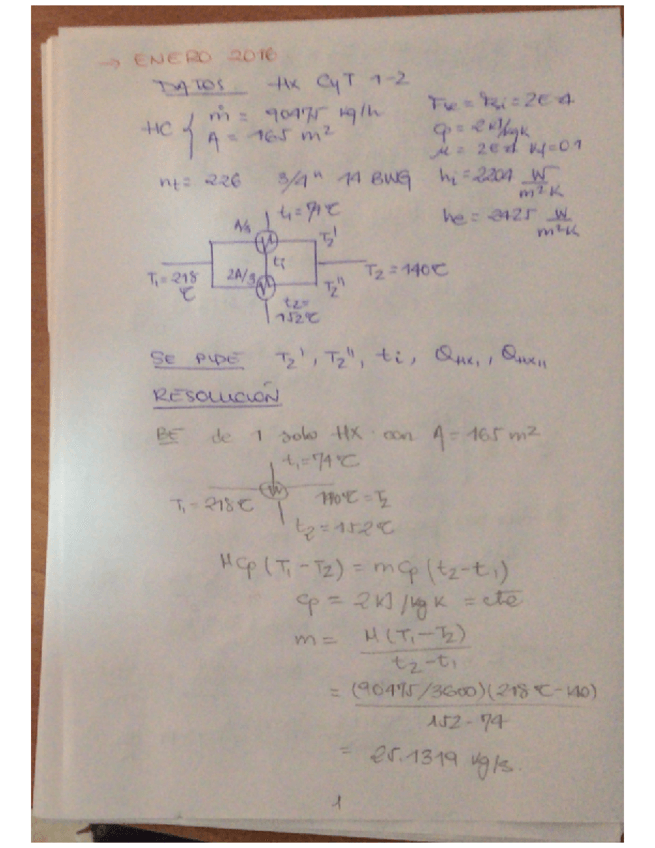 → ENERO 2016
DATOS Hx CyT 1-2
HC { ṁ = 90475 kg/h
A = 165 m²
rve = rvi = 2E-4
Cp = 2 kJ/kgK
μ = 2E-4 kf = 0.1
nt = 226 3/4" 14 BWG
hi = 2204 W/m²K
he = 2425 W/m²K
t1 = 74ºC
A/3
T2'
T1 = 218ºC
2A/3
ti
T2''
T2 = 140ºC
t2 = 152ºC
SE PIDE T2', T2'', ti, QHXI, QHXII
RESOLUCIÓN
BE de 1 solo HX con A = 165 m²
t1 = 74ºC
T1 = 218ºC 140ºC = T2
t2 = 152ºC
MCp (T1 - T2) = mCp (t2 - t1)
Cp = 2 kJ/kg K = cte
m = M (T1 - T2) / t2 - t1
= (90475/3600)(218ºC - 140) / 152 - 74
= 25.1319 kg/s.
1